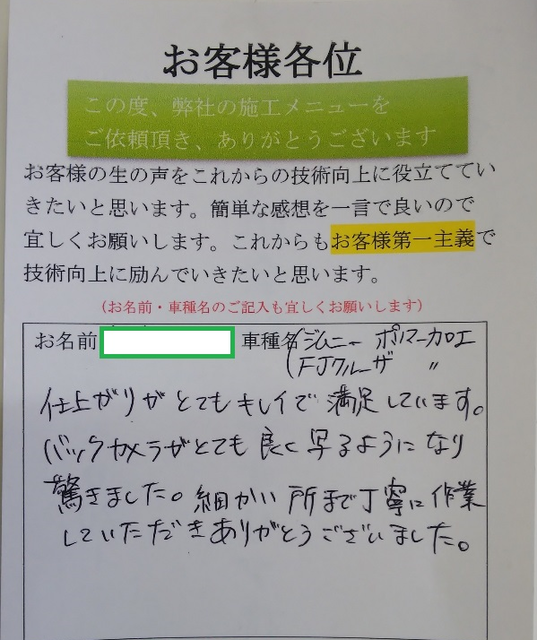 お客様各位
この度、弊社の施工メニューを
ご依頼頂き、ありがとうございます
お客様の生の声をこれからの技術向上に役立ててい
きたいと思います。簡単な感想を一言で良いので
宜しくお願いします。これからもお客様第一主義で
技術向上に励んでいきたいと思います。
(お名前・車種名のご記入も宜しくお願いします)
お名前 車種名(ジムニー ポリマー加工
(FJクルーザ 〃
仕上がりがとてもキレイで満足しています。
バックカメラがとても良く写るようになり
驚きました。細かい所まで丁寧に作業
していただきありがとうございました。